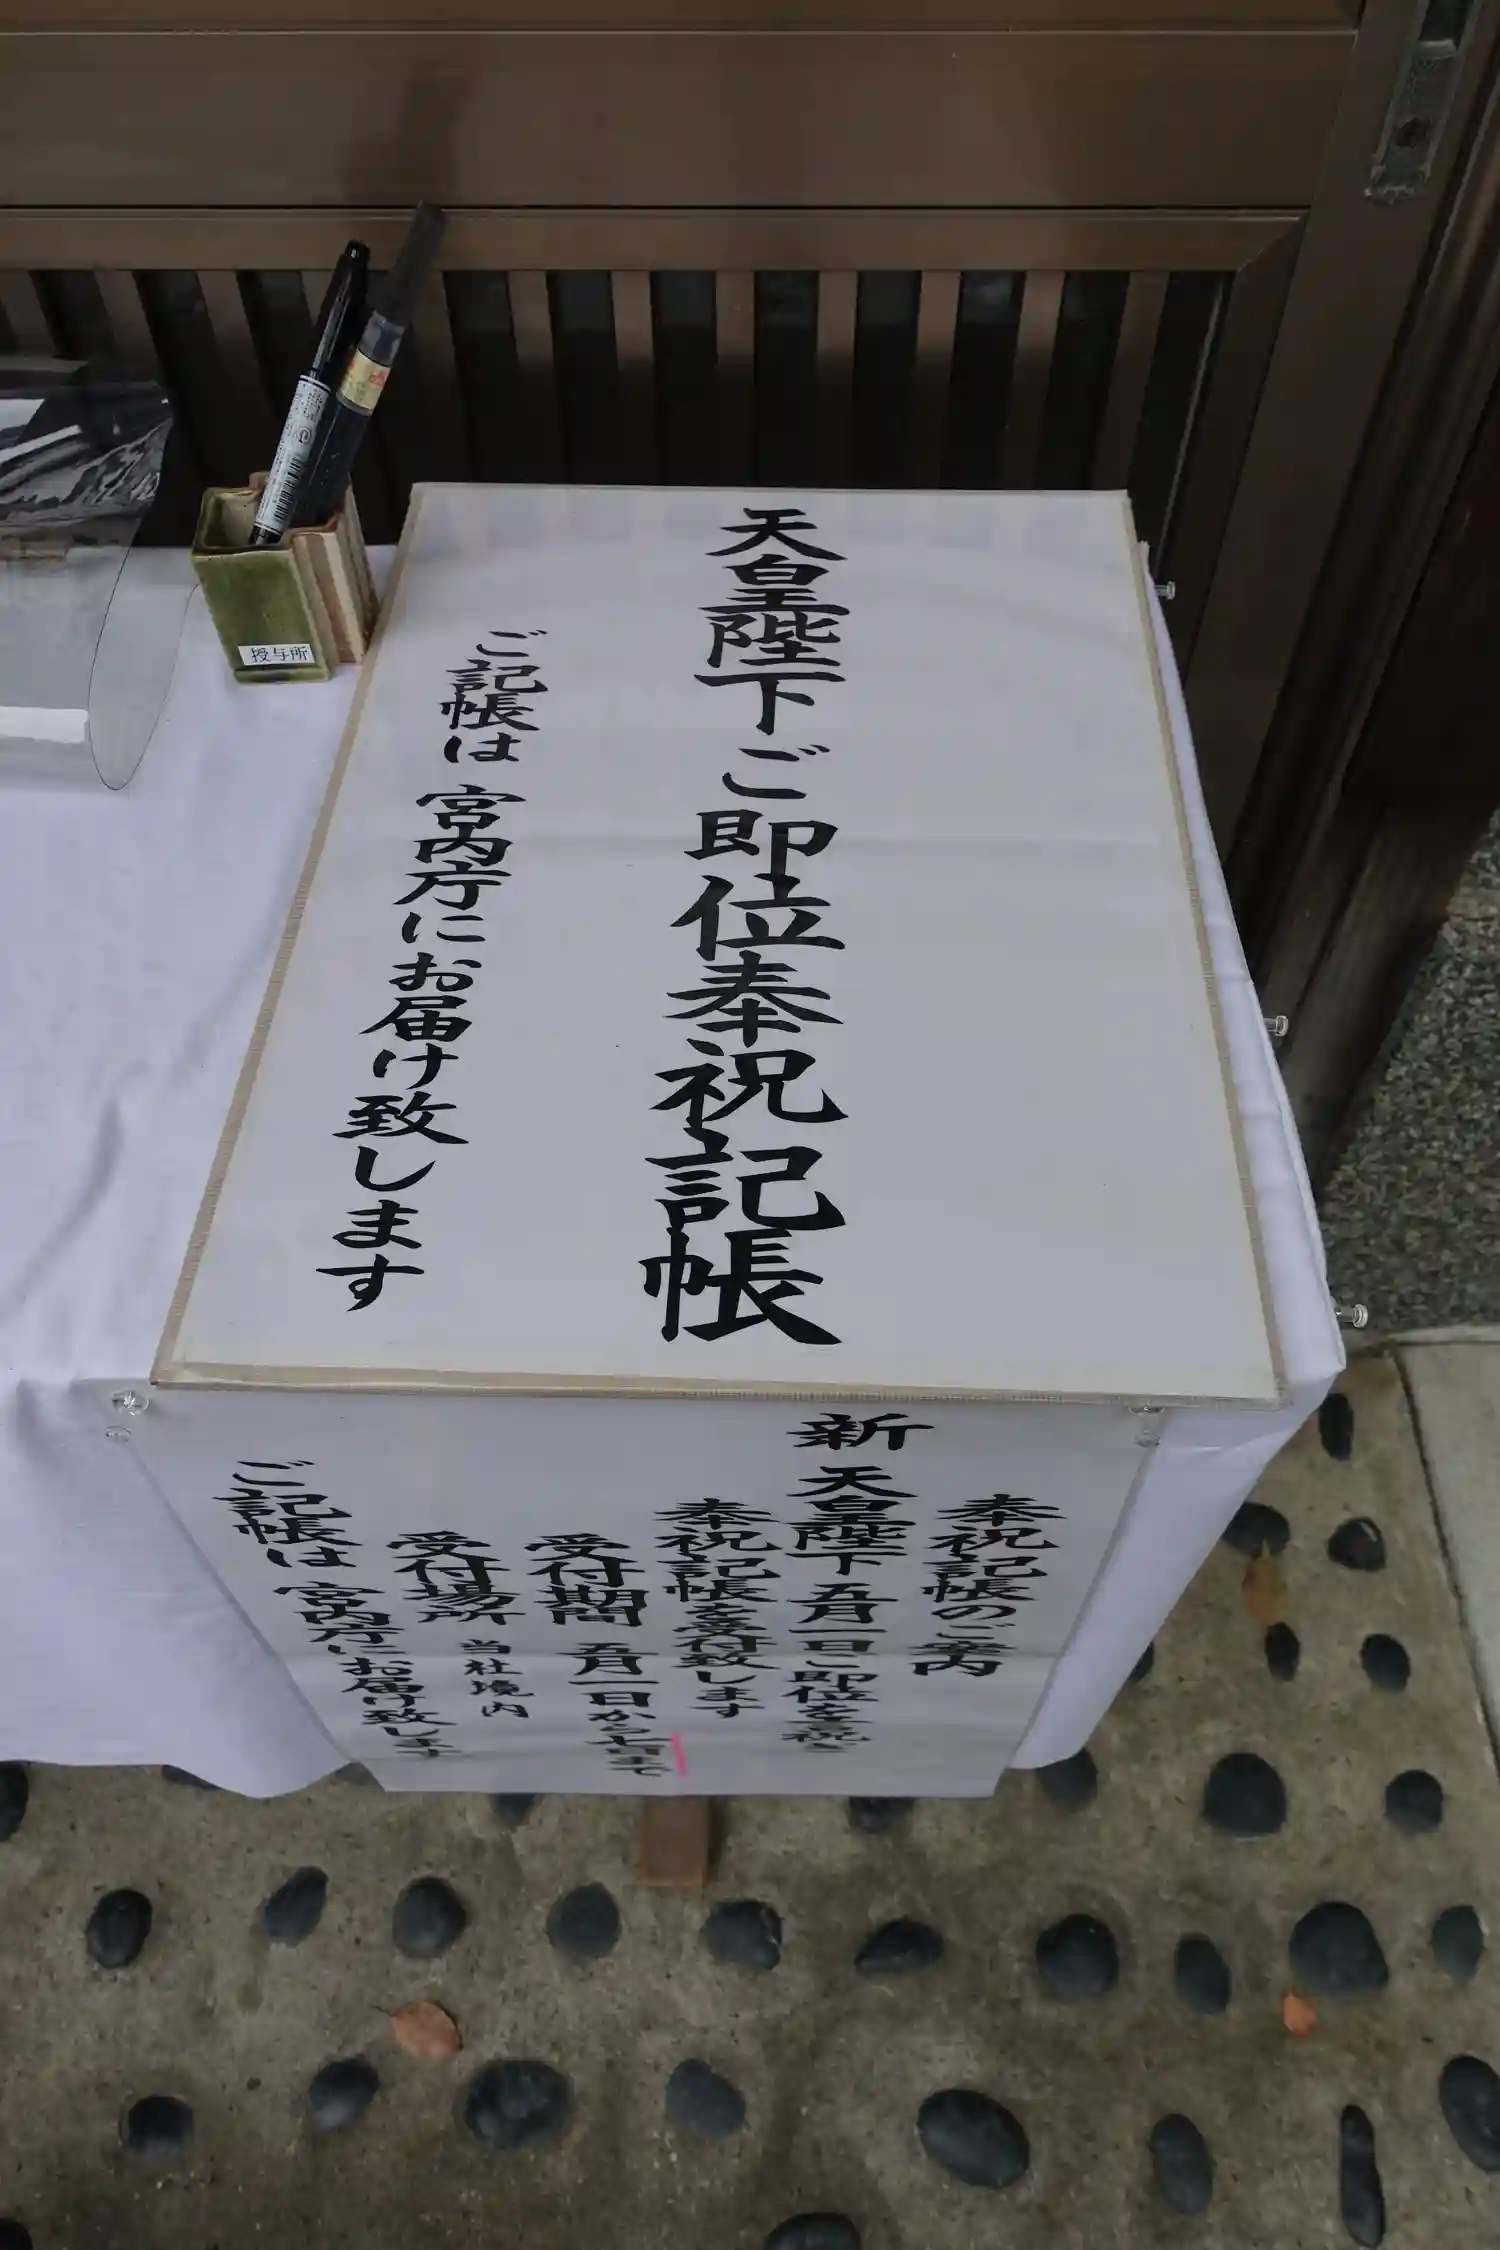 授与所
天皇陛下ご即位奉祝記帳
ご記帳は 宮内庁にお届け致します
奉祝記帳のご案内
新 天皇陛下 五月一日ご即位を祝い
奉祝記帳を受付致します
受付期間 五月一日から七日まで
受付場所 当社境内
ご記帳は 宮内庁にお届け致します